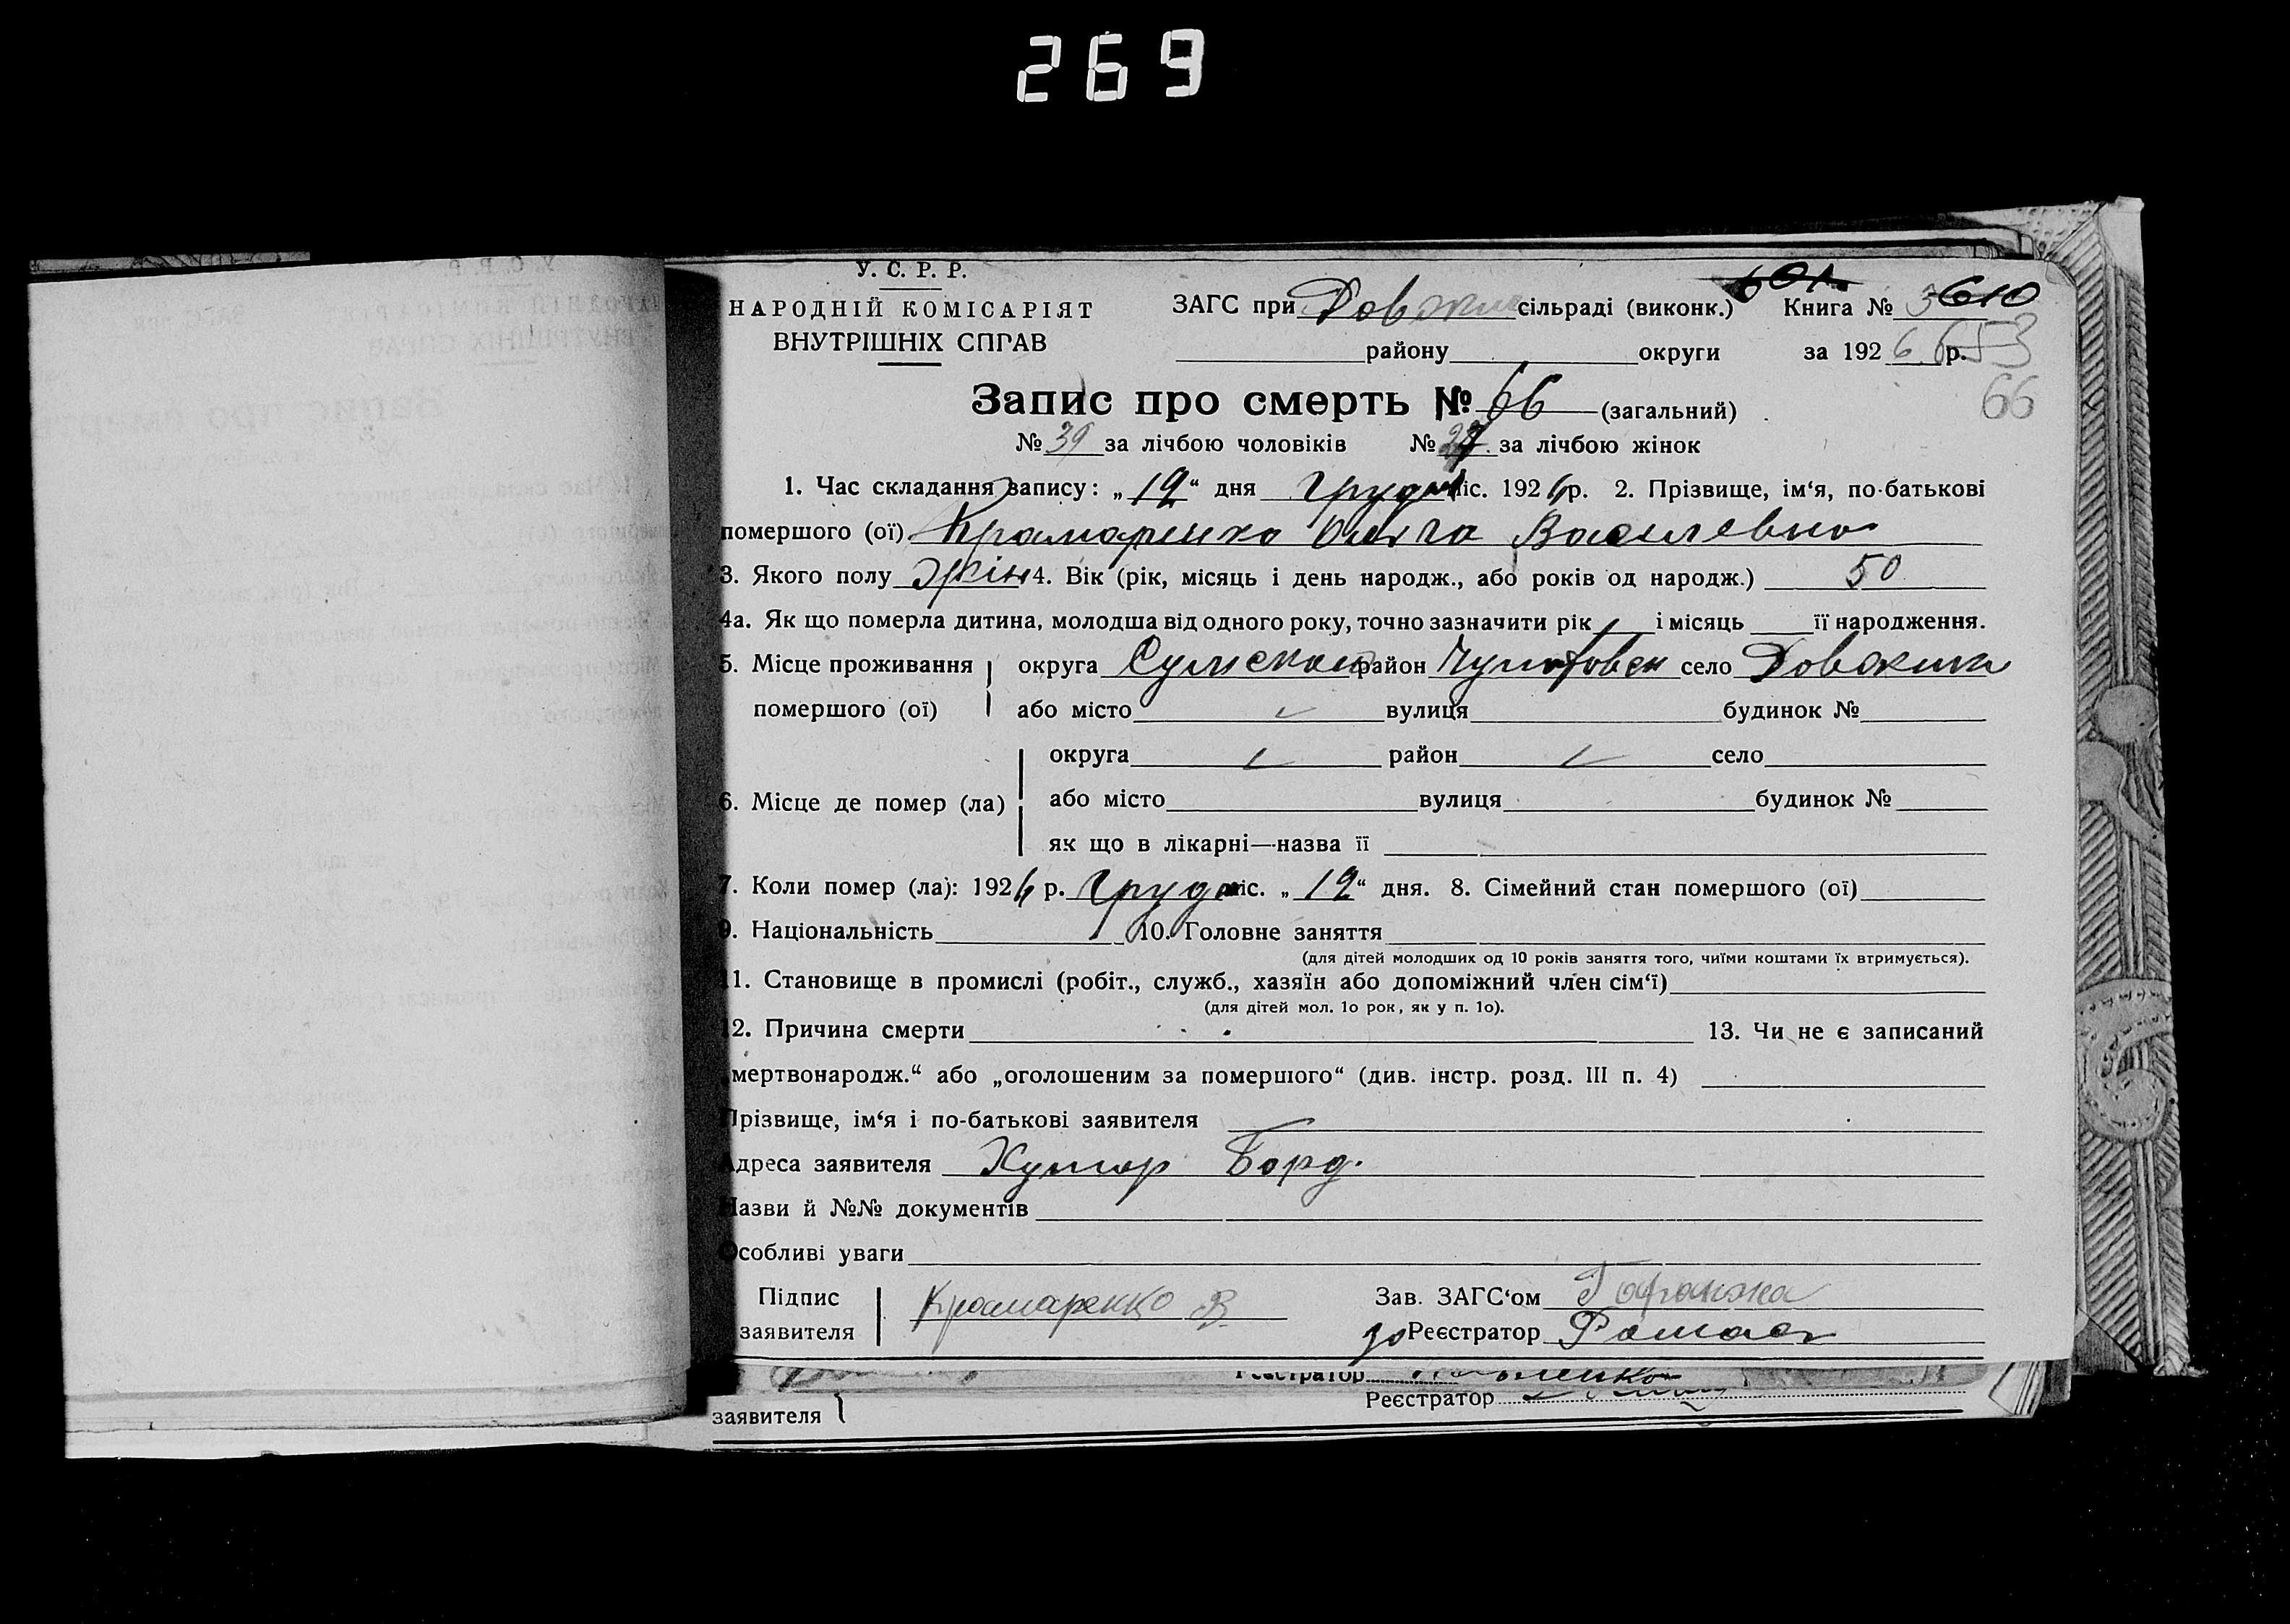 269
У. С. Р. Р.
НАРОДНІЙ КОМІСАРІЯТ
ВНУТРІШНІХ СПРАВ
ЗАГС при Довжик сільраді (виконк.) 601 Книга № 3 610
району округи за 1926 р. 653
66
Запис про смерть № 66 (загальний)
№ 39 за лічбою чоловіків № 27 за лічбою жінок
1. Час складання запису: „19“ дня грудн міс. 1926 р. 2. Прізвище, ім‘я, по-батькові
помершого (ої) Крамаренко Ольга Василевна
3. Якого полу жін 4. Вік (рік, місяць і день народж., або років од народж.) 50
4а. Як що померла дитина, молодша від одного року, точно зазначити рік і місяць її народження.
5. Місце проживання округа Сумская район село Довжик
помершого (ої) або місто вулиця будинок №
округа район село
6. Місце де помер (ла) або місто вулиця будинок №
як що в лікарні—назва її
7. Коли помер (ла): 1926 р. грудн міс. „19“ дня. 8. Сімейний стан помершого (ої)
9. Національність 10. Головне заняття
(для дітей молодших од 10 років заняття того, чиїми коштами їх втримується).
11. Становище в промислі (робіт., служб., хазяїн або допоміжний член сім‘ї)
(для дітей мол. 1о рок, як у п. 1о).
12. Причина смерти 13. Чи не є записаний
„мертвонародж.“ або „оголошеним за помершого“ (див. інстр. розд. III п. 4)
Прізвище, ім‘я і по-батькові заявителя
Адреса заявителя Хутор Борд.
Назви й №№ документів
Особливі уваги
Підпис
заявителя Крамаренко В
Зав. ЗАГС‘ом
за Реєстратор
Реєстратор
Реєстратор
заявителя